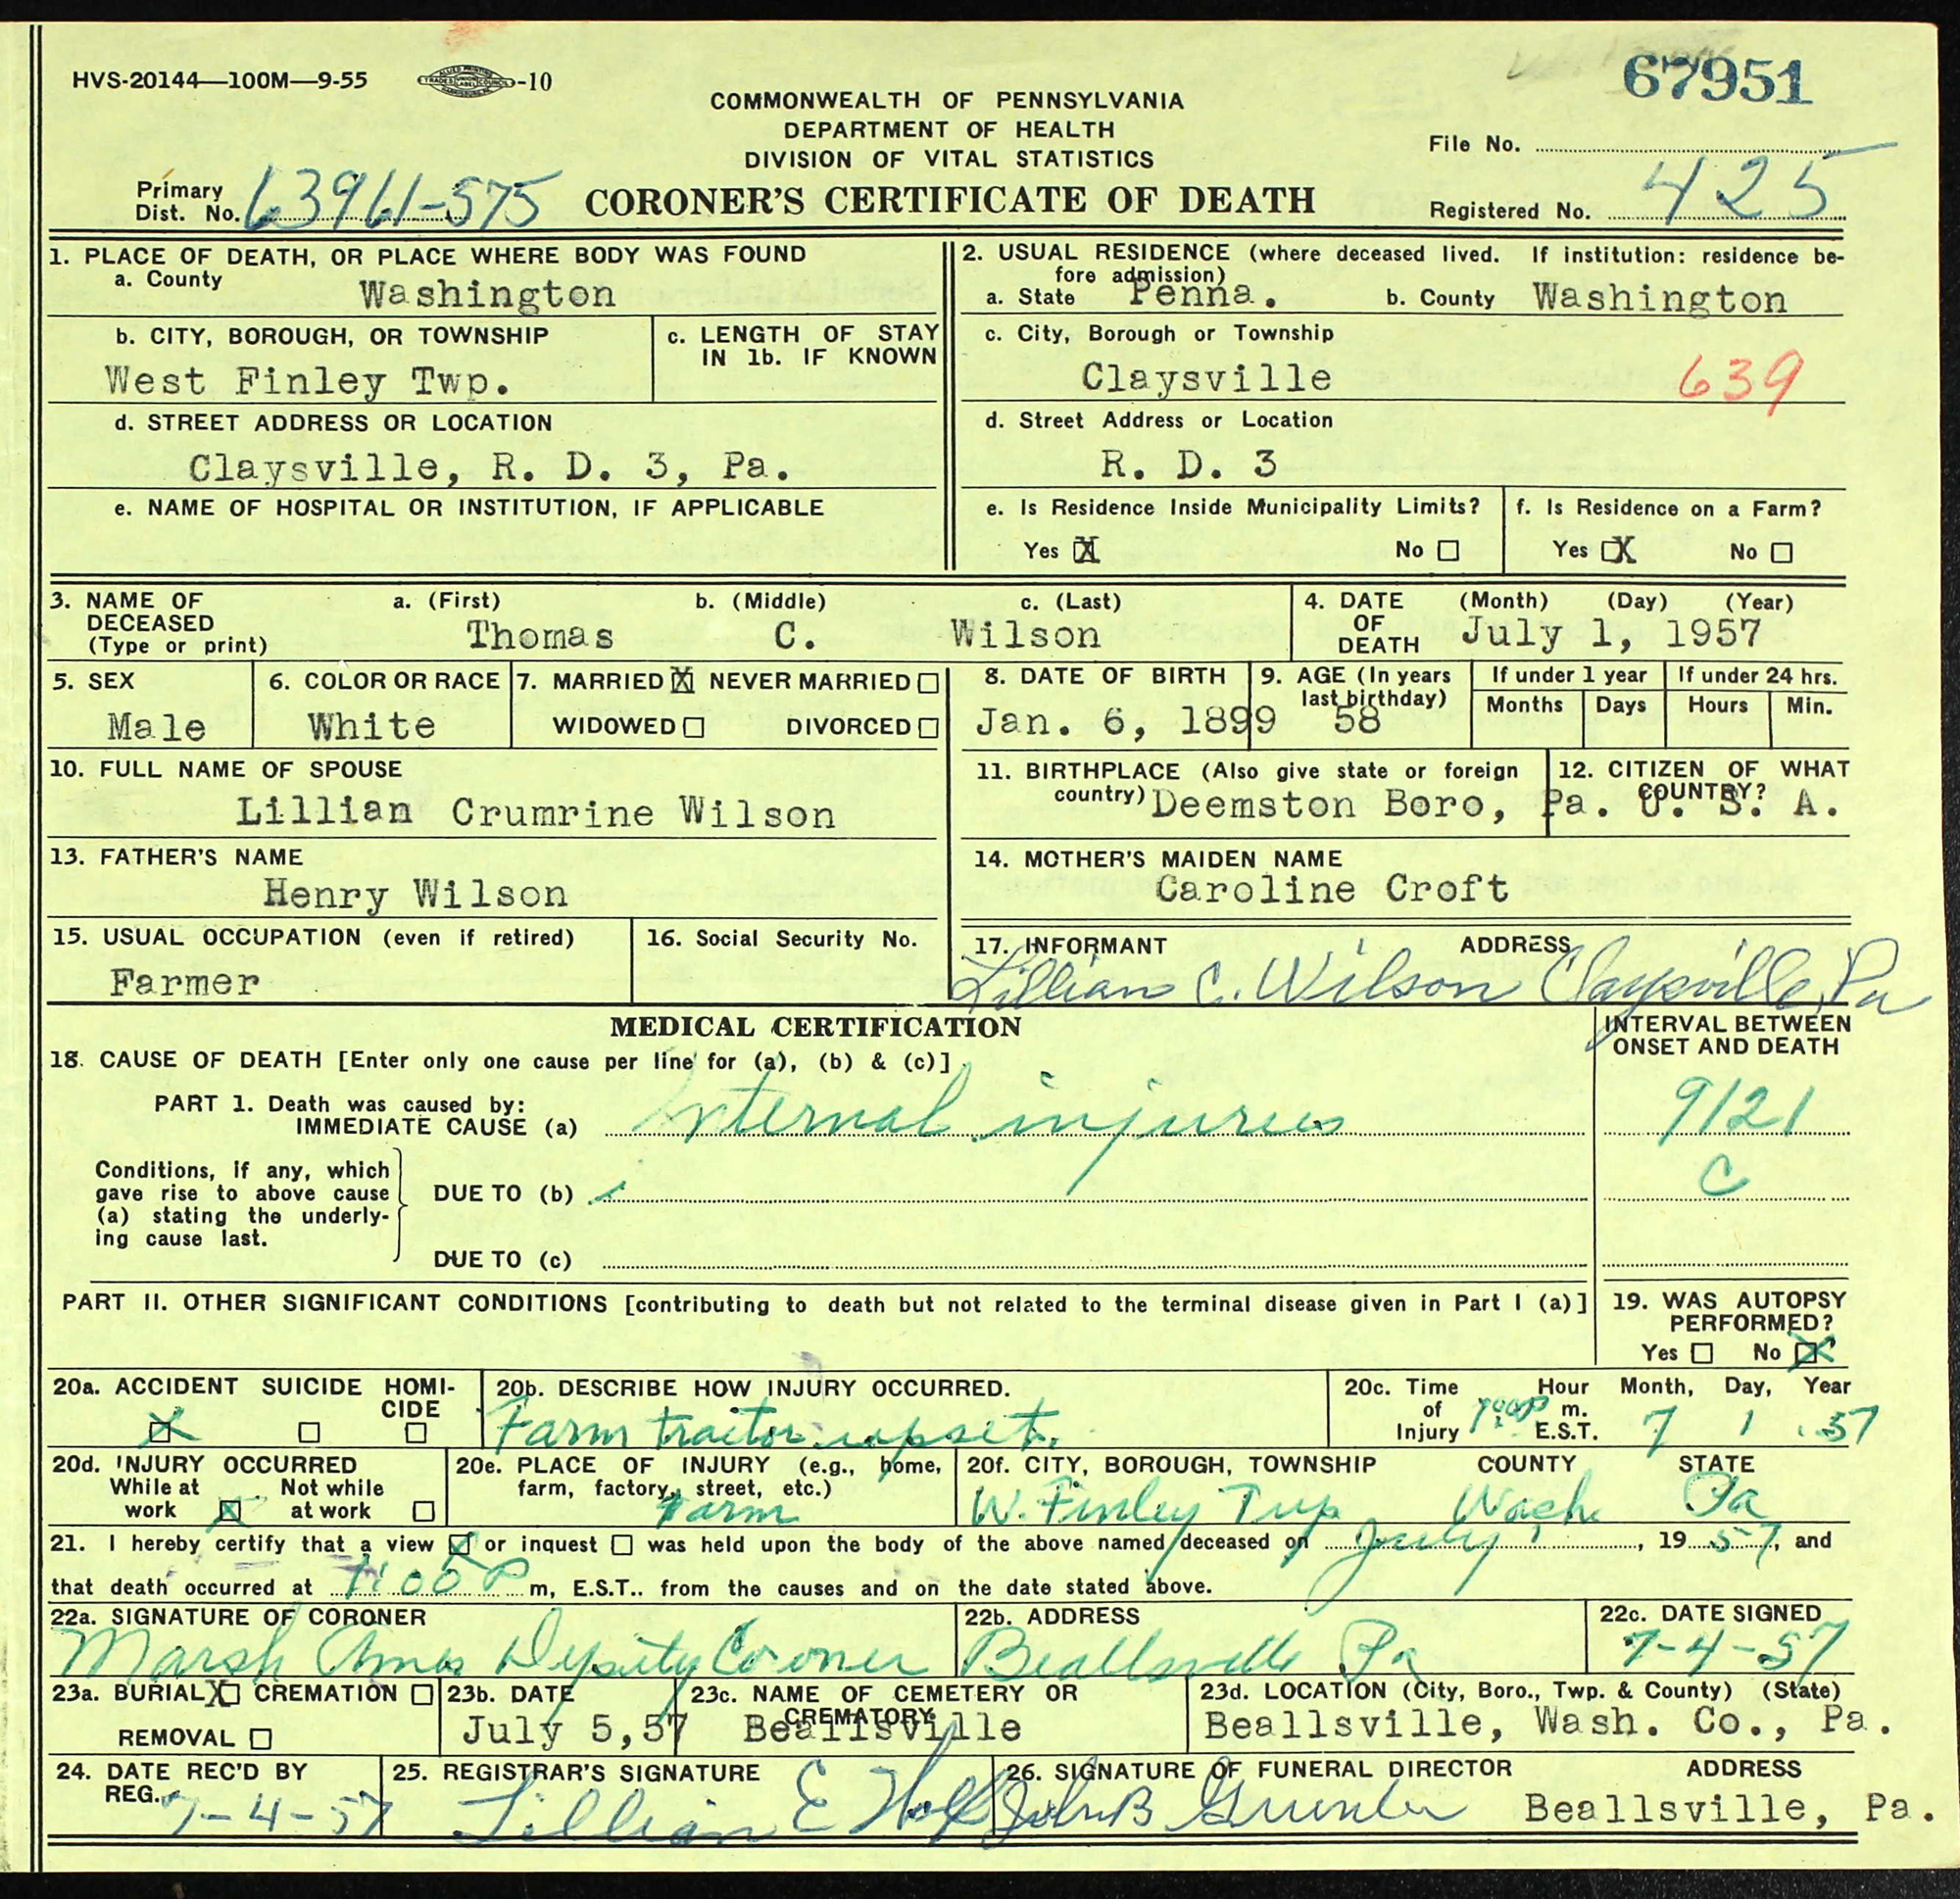 HVS-20144—100M—9-55 -10
67951
COMMONWEALTH OF PENNSYLVANIA
DEPARTMENT OF HEALTH
DIVISION OF VITAL STATISTICS
File No.
Primary Dist. No. 63961-575
CORONER'S CERTIFICATE OF DEATH
Registered No. 425
1. PLACE OF DEATH, OR PLACE WHERE BODY WAS FOUND
a. County Washington
2. USUAL RESIDENCE (where deceased lived. If institution: residence before admission)
a. State Penna. b. County Washington
b. CITY, BOROUGH, OR TOWNSHIP
West Finley Twp.
c. LENGTH OF STAY IN 1b. IF KNOWN
c. City, Borough or Township
Claysville 639
d. STREET ADDRESS OR LOCATION
Claysville, R. D. 3, Pa.
d. Street Address or Location
R. D. 3
e. NAME OF HOSPITAL OR INSTITUTION, IF APPLICABLE
e. Is Residence Inside Municipality Limits?
Yes X No
f. Is Residence on a Farm?
Yes X No
3. NAME OF DECEASED (Type or print)
a. (First) b. (Middle) c. (Last)
Thomas C. Wilson
4. DATE OF DEATH (Month) (Day) (Year)
July 1, 1957
5. SEX
Male
6. COLOR OR RACE
White
7. MARRIED X NEVER MARRIED
WIDOWED DIVORCED
8. DATE OF BIRTH
Jan. 6, 1899
9. AGE (In years last birthday)
58
If under 1 year
Months Days
If under 24 hrs.
Hours Min.
10. FULL NAME OF SPOUSE
Lillian Crumrine Wilson
11. BIRTHPLACE (Also give state or foreign country)
Deemston Boro, Pa.
12. CITIZEN OF WHAT COUNTRY?
U. S. A.
13. FATHER'S NAME
Henry Wilson
14. MOTHER'S MAIDEN NAME
Caroline Croft
15. USUAL OCCUPATION (even if retired)
Farmer
16. Social Security No.
17. INFORMANT ADDRESS
Lillian C. Wilson Claysville, Pa
MEDICAL CERTIFICATION
INTERVAL BETWEEN ONSET AND DEATH
18. CAUSE OF DEATH [Enter only one cause per line for (a), (b) & (c)]
PART 1. Death was caused by:
IMMEDIATE CAUSE (a) Internal injuries 9121
C
Conditions, if any, which gave rise to above cause (a) stating the underlying cause last.
DUE TO (b)
DUE TO (c)
PART II. OTHER SIGNIFICANT CONDITIONS [contributing to death but not related to the terminal disease given in Part I (a)]
19. WAS AUTOPSY PERFORMED?
Yes No X
20a. ACCIDENT SUICIDE HOMICIDE
X
20b. DESCRIBE HOW INJURY OCCURRED.
Farm tractor upset.
20c. Time of Injury Hour m. E.S.T. Month, Day, Year
1:00P 7 1 57
20d. INJURY OCCURRED
While at work X Not while at work
20e. PLACE OF INJURY (e.g., home, farm, factory, street, etc.)
Farm
20f. CITY, BOROUGH, TOWNSHIP COUNTY STATE
W. Finley Twp Wash. Pa
21. I hereby certify that a view X or inquest was held upon the body of the above named deceased on July 1, 1957, and
that death occurred at 1:00 P m, E.S.T.. from the causes and on the date stated above.
22a. SIGNATURE OF CORONER
Marsh Ames Deputy Coroner
22b. ADDRESS
Beallsville Pa
22c. DATE SIGNED
7-4-57
23a. BURIAL X CREMATION
REMOVAL
23b. DATE
July 5,57
23c. NAME OF CEMETERY OR CREMATORY
Beallsville
23d. LOCATION (City, Boro., Twp. & County) (State)
Beallsville, Wash. Co., Pa.
24. DATE REC'D BY REG.
7-4-57
25. REGISTRAR'S SIGNATURE
Lillian E
26. SIGNATURE OF FUNERAL DIRECTOR ADDRESS
John B Beallsville, Pa.